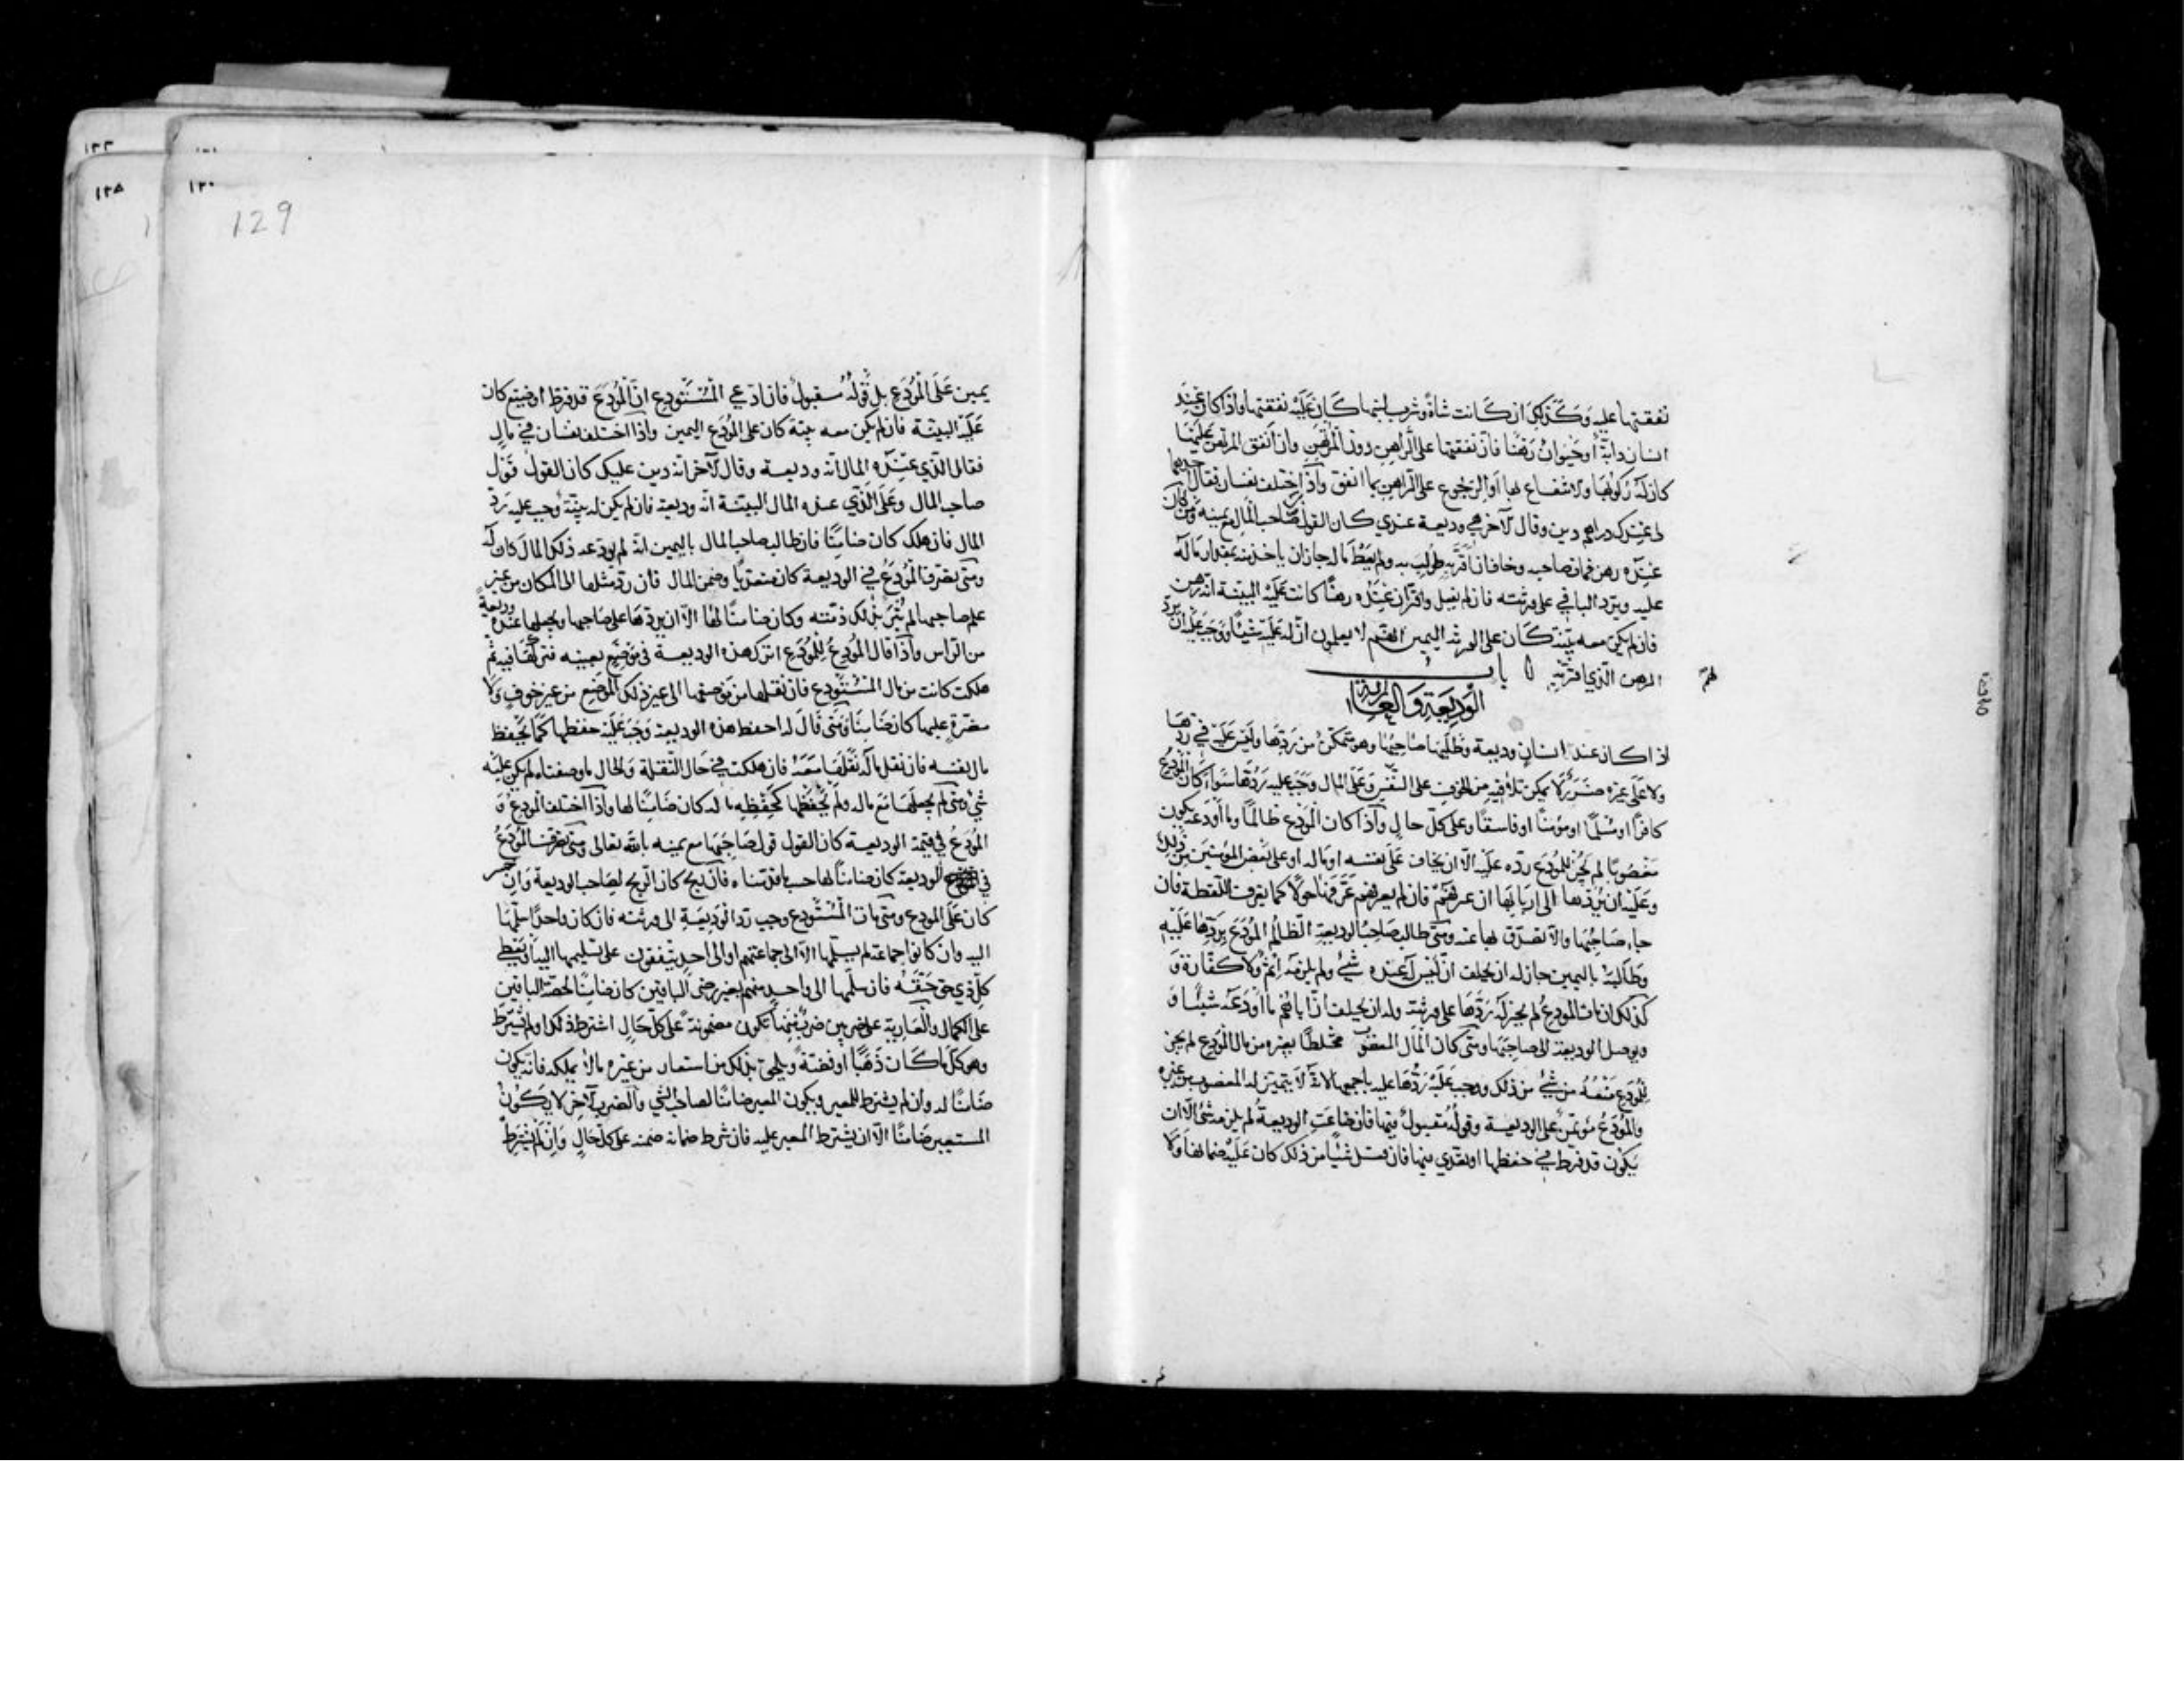 نفقتها عليه وكذلك ان كانت شاة وشرب لبنها كان عليه نفقتها واذا كان عند
انسان دابة أو حيوان رهنا فان نفقتها على الراهن دون المرتهن وان انفق المرتهن عليها
كان له ركوبها والانتفاع بها أو الرجوع على الراهن بما انفق واذا اختلف نفسان فقال احدهما
لى عندك دراهم دين وقال الآخر هي وديعة عندي كان القول قول صاحب المال مع يمينه ومن كان
عنده رهن فمات صاحبه وخاف ان اقر به طولب به ولم يعط ماله جاز ان ياخذ منه بمقدار ماله
عليه ويرد الباقي على ورثته فان لم يفعل واقر ان عنده رهنا كانت عليه البينة انه رهن
فان لم يكن معه بينة كان على الورثة اليمين انهم لا يعلمون ان له عليه شيئا ووجب عليه ان يرد
الرهن الذي اقر به باب
لهم
الوديعة والعارية
اذا كان عند انسان وديعة وطلبها صاحبها وهو متمكن من ردها وليس عليه في ردها
ولا على غيره ضرر لا يمكن تلافيه من الخوف على النفس وعلى المال وجب عليه ردها سواء كان المودع
كافرا او مسلما او مؤمنا او فاسقا وعلى كل حال واذا كان المودع ظالما وما أودعه يكون
مغصوبا لم يجز للمودع رده عليه الا ان يخاف على نفسه او ماله او على بعض المؤمنين من ذلك
وعليه ان يردها الى اربابها ان عرفهم فان لم يعرفهم عرفها حولا كما يعرف اللقطة فان
جاء صاحبها والا تصدق بها عنه ومتى طالب صاحب الوديعة الظالم المودع بردها عليه
وطالبه باليمين جاز له ان يحلف ان ليس له عنده شيء ولم يلزمه إثم ولا كفارة و
كذلك ان مات المودع لم يجز له ردها على ورثته وله ان يحلف ان اباهم ما أودعه شيئا و
ويوصل الوديعة الى صاحبها ومتى كان المال المغصوب مختلطا بغيره من مال المودع لم يجز
للمودع منعه من شيء من ذلك ووجب عليه ردها عليه باجمعها لانه لا يتميز له المغصوب من غيره
والمودع مؤتمن على الوديعة وقوله مقبول فيها فان ضاعت الوديعة لم يلزمه شئ الا ان
يكون قد فرط في حفظها او تعدي فيها فان فعل شيئا من ذلك كان عليه ضمانها ولا
129
١٣٠
يمين على المودع بل قوله مقبول فان ادعي المستودع ان المودع قد فرط أو ضيع كان
عليه البينة فان لم يكن معه بينة كان على المودع اليمين واذا اختلف نفسان في مال
فقال الذي عنده المال انه وديعة وقال الآخر انه دين عليك كان القول قول
صاحب المال وعلى الذي عنده المال البينة انه وديعة فان لم يكن له بينة وجب عليه رد
المال فان هلك كان ضامنا فان طالب صاحب المال باليمين انه لم يودعه ذلك المال كان له
ومتى تصرف المودع في الوديعة كان متعديا وضمن المال فان رد مثلها الى المكان من غير
علم صاحبها لم تبرئ بذلك ذمته وكان ضامنا لها الا ان يردها على صاحبها ويجعلها عنده وديعة
من الرأس واذا قال المودع للمودع اترك هذه الوديعة في موضع بعينه فتركها فيه ثم
هلكت كانت من مال المستودع فان نقلها من موضعها الى غير ذلك الموضع من غير خوف ولا
مضرة عليها كان ضامنا ومتى قال له احفظ هذه الوديعة وجب عليه حفظها كما يحفظ
مال نفسه فان نقل ماله نقلها معه فان هلكت في حال النقلة والحال ما وصفناه لم يكن عليه
شئ ومتى لم يجعلها مع ماله ولم يحفظها كحفظه ماله كان ضامنا لها واذا اختلف المودع و
المودع في قيمة الوديعة كان القول قول صاحبها مع يمينه بالله تعالى ومتى تصرف المودع
في الوديعة كان ضامنا لها حسب ما قدمناه فان ربح كان الربح لصاحب الوديعة وان خسر
كان على المودع ومتى مات المستودع وجب رد الوديعة الى ورثته فان كان واحدا سلمها
اليه وان كانوا جماعة لم يسلمها الا الى جماعتهم او الى واحد يتفقون على تسليمها اليه او يعطي
كل ذي حق حقه فان سلمها الى واحد منهم بغير رضى الباقين كان ضامنا لحصة الباقين
على الكمال والعارية على ضربين ضرب منها تكون مضمونة على كل حال اشترط ذلك او لم يشترط
وهو كل ما كان ذهبا او فضة ويلحق بذلك من استعار من غيره ما لا يملكه فانه يكون
ضامنا له وان لم يشترط المعير ويكون المعير ضامنا لصاحب الشي والضرب الآخر لا يكون
المستعير ضامنا الا ان يشترط المعير عليه فان شرط ضمانه ضمنه على كل حال وان لم يشترط